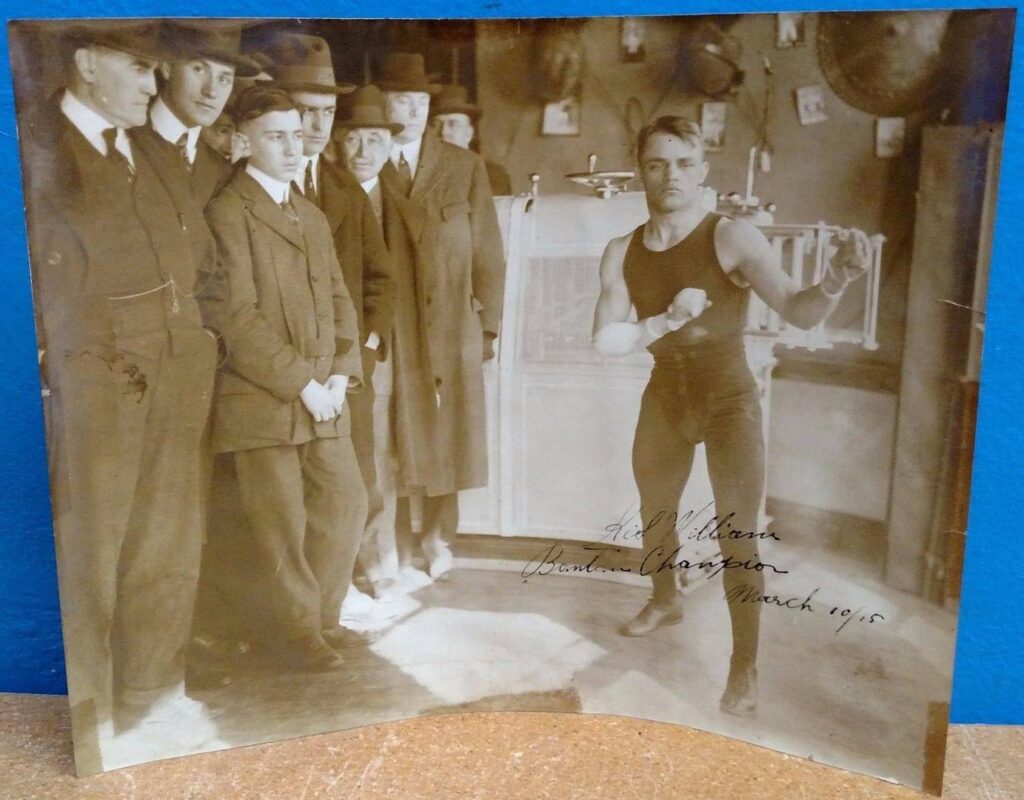 Kid Williams
Bantim Champion
March 10/15